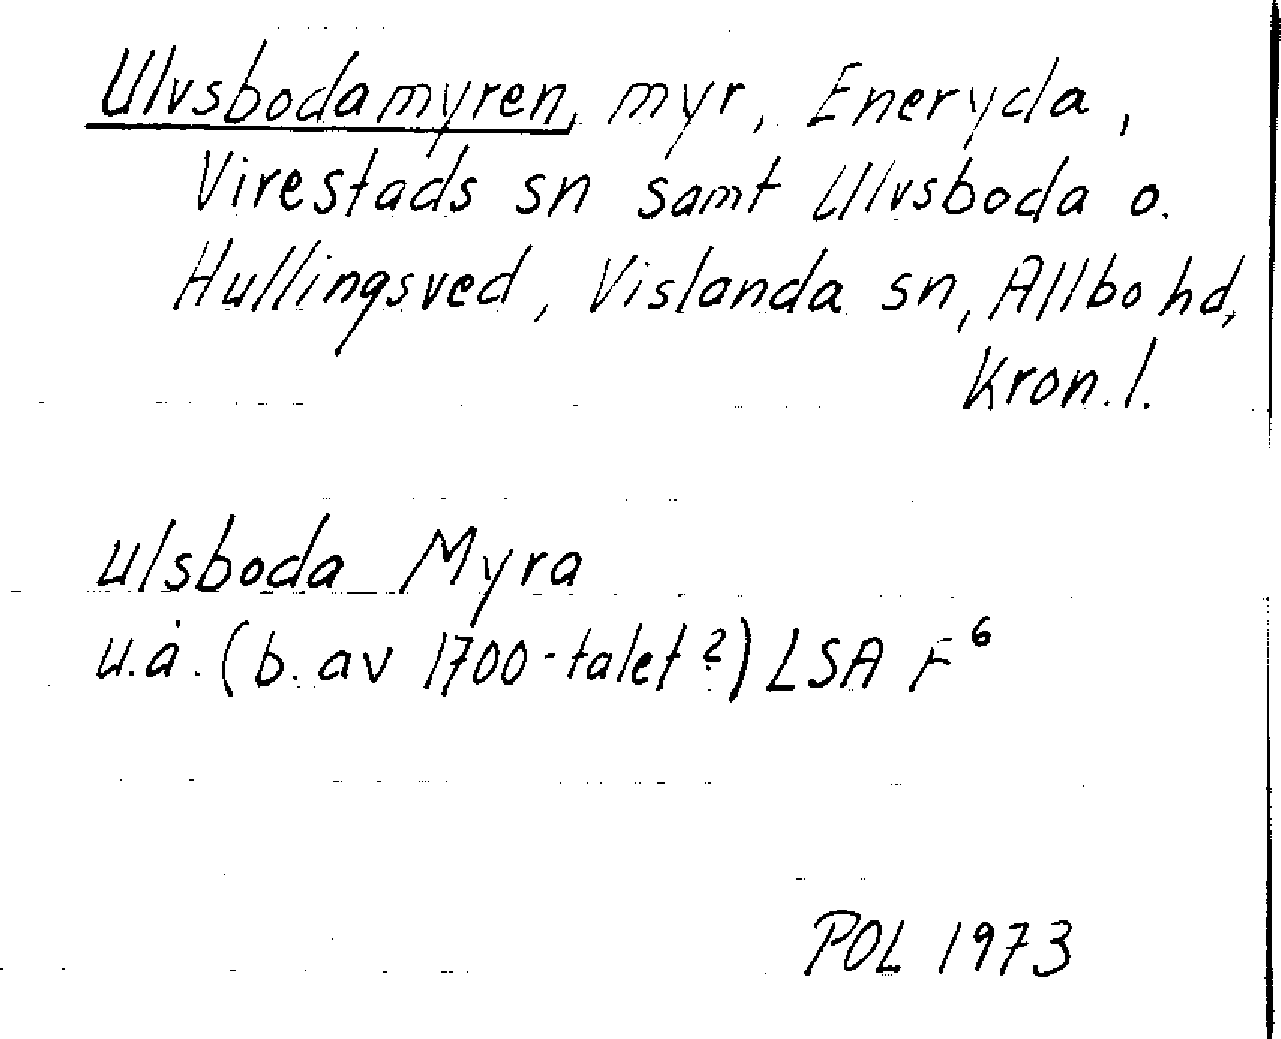 Ulvsbodamyren, myr, Eneryda,
Virestads sn samt Ulvsboda o.
Hullingsved, Vislanda sn, Allbo hd,
Kron. l.
Ulsboda Myra
u.å. (b. av 1700-talet?) LSA F⁶
POL 1973